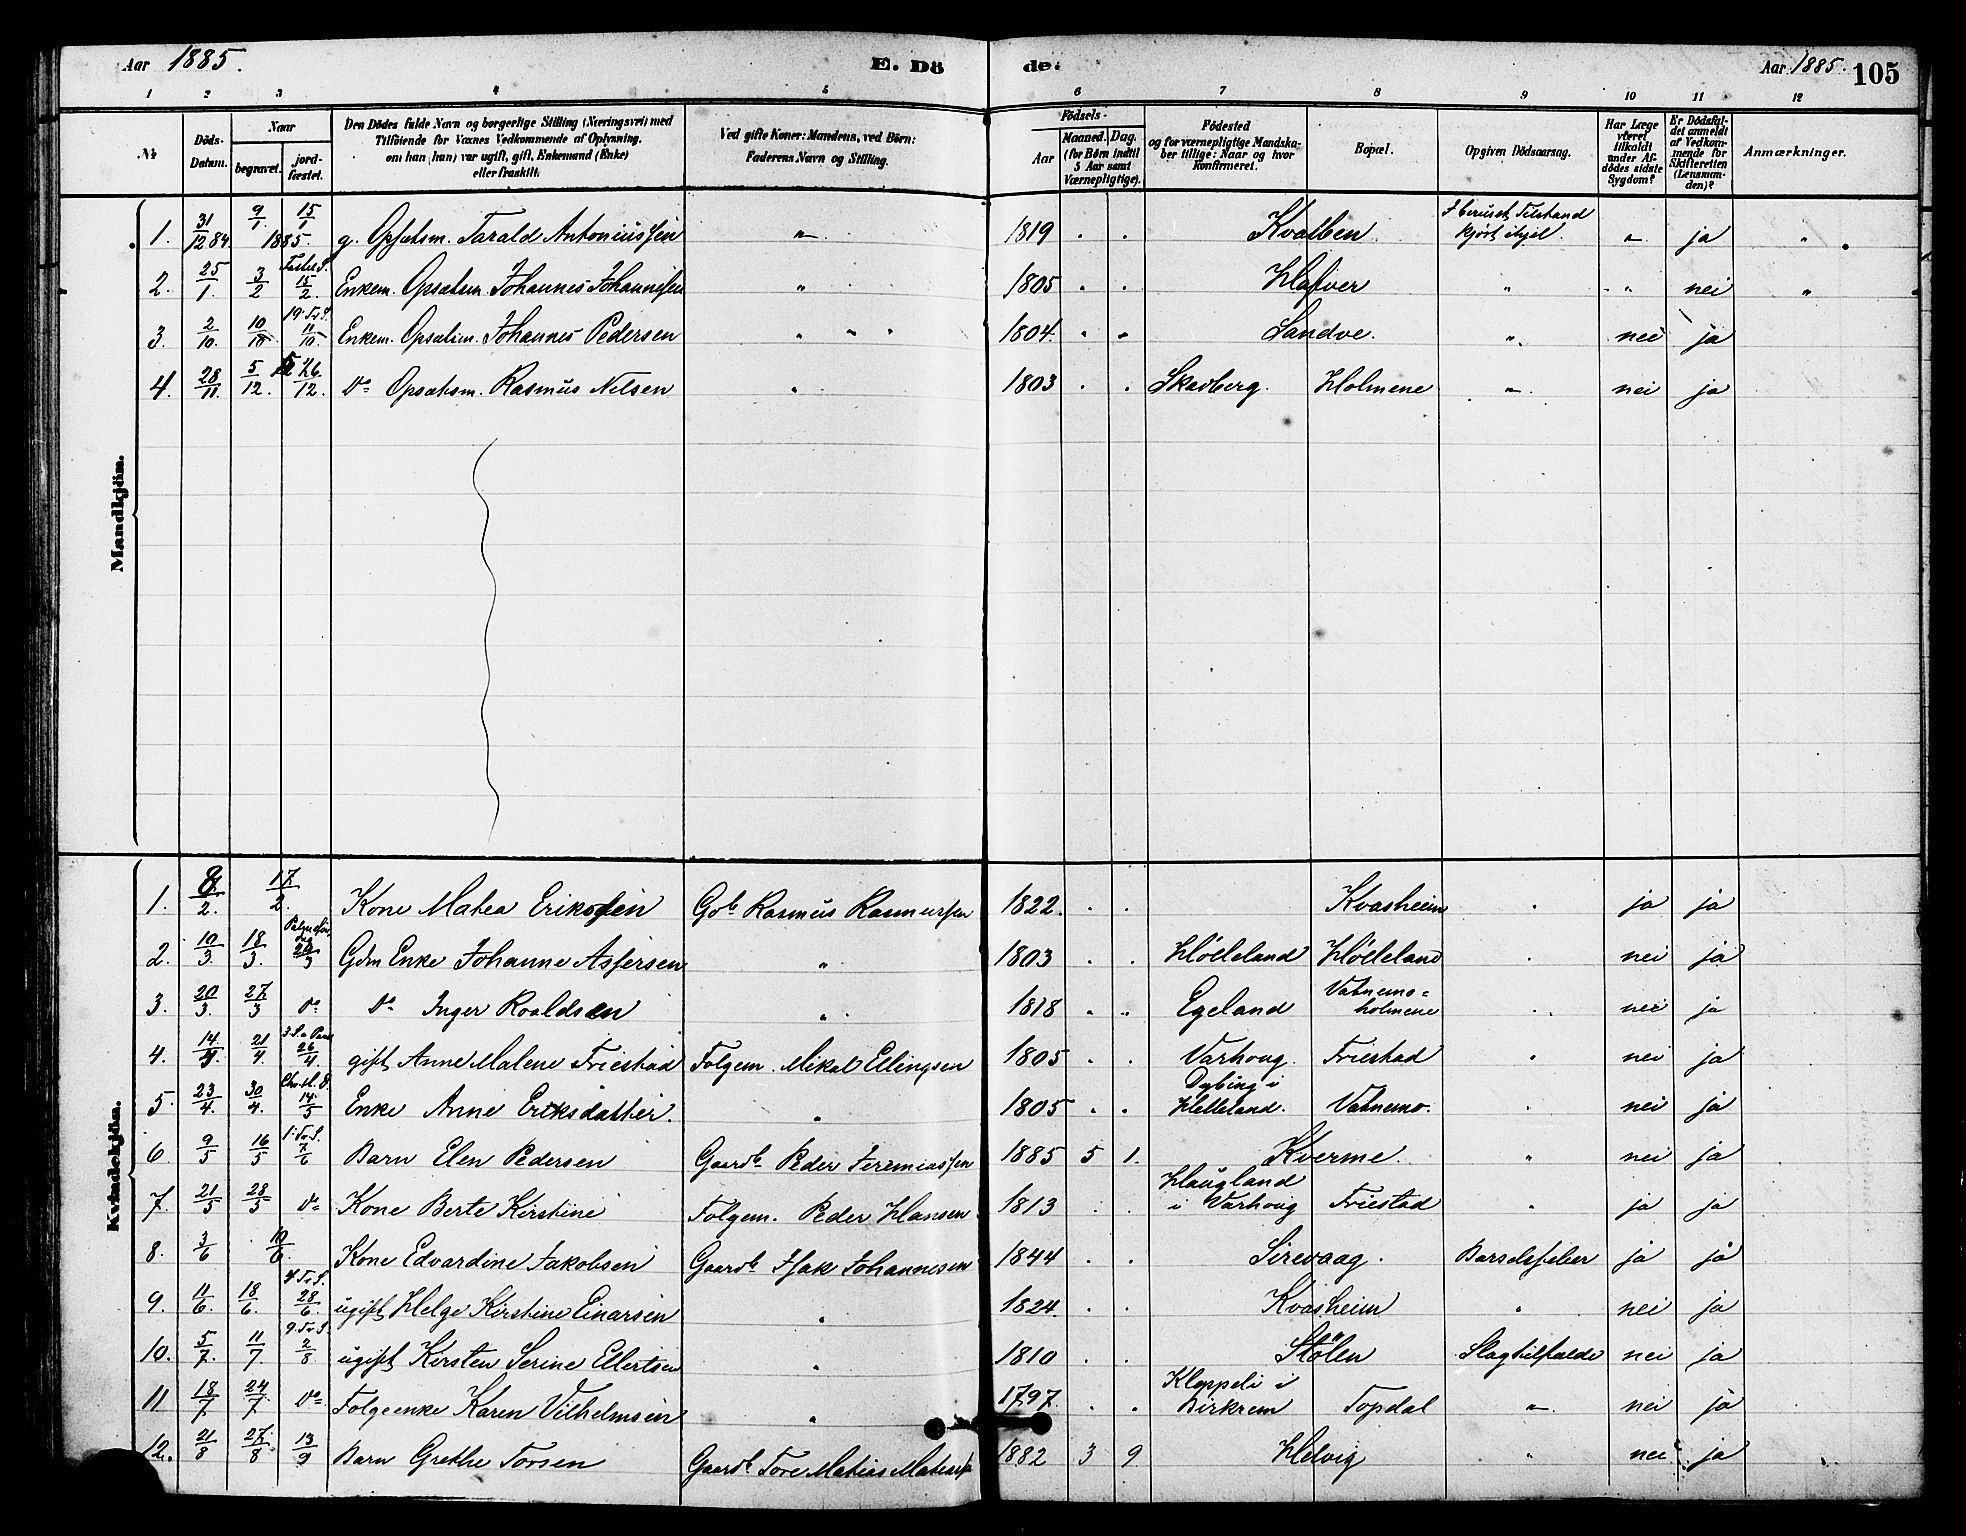 Aar 1885. E. Dö
de. Aar 1885. 105
1 2 3 4 5 6 7 8 9 10 11 12
№ Döds-Datum. Naar begravet. jordfæstet. Den Dödes fulde Navn og borgerlige Stilling (Næringsvei) med Tilföiende for Voxnes Vedkommende af Oplysning. om han (hun) var ugift, gift, Enkemand (Enke) eller fraskilt. Ved gifte Koner: Mandens, ved Börn: Faderens Navn og Stilling. Födsels- Aar Maaned. Dag. (for Børn indtil 5 Aar samt Værnepligtige). Födested og for værnepligtige Mandskaber tillige: Naar og hvor Konfirmeret. Bopæl. Opgiven Dödsaarsag. Har Læge været tilkaldt under Afdödes sidste Sygdom? Er Dödsfaldet anmeldt af Vedkommende for Skifteretten (Lensmanden)? Anmærkninger.
Mandkjön.
1. 31/12 84 9/1 1885. 15/1 g. Opsatsm. Tarald Antoniussen " 1819 Kvalben I beruset Tilstand kjört ihjel. " ja "
2. 25/1. 3/2 Fastel. S. 15/2. Enkem. Opsatsm. Johannes Johannessen " 1805 Hafver " " nei "
3. 2/10. 10/10 19. Tr. S. 11/10. Enkem. Opsatsm. Johannes Pedersen " " " 1804. Sandve. " nei ja
4. 28/11. 5/12. 26/12. Do Opsatsm. Rasmus Nelsen " 1803 Skadberg. Holmene " nei ja
Kvindekjön.
1. 8/2. 17/2. Kone Matea Eriksen Gb. Rasmus Rasmussen 1822. Kvasheim " ja ja
2. 10/3. 18/3. Gdm Enke Johanne Asfersen " 1803 Hölleland Hölleland " nei ja
3. 20/3. 27/3 Do Do Inger Roaldsen " 1818 Egeland Vatnemo=holmene nei ja
4. 14/4. 21/4. 26/4 gift Anne Malene Friestad Folgem. Mikal Ellingsen 1805 Varhoug. Friestad " nei ja
5. 23/4. 30/4. 14/5 Enke Anne Eriksdatter. " 1805 Dybing i Helleland. Vatnemo. " nei ja
6. 9/5 16/5 1. Tr. S. 7/6 Barn Elen Pedersen Gaardb. Peder Jeremiassen 1885 5 1. Kverme. " nei ja
7. 21/5 28/5 Do Kone Berte Kirstine Folgem. Peder Hansen 1813 Haugland i Varhoug Friestad " ja ja
8. 3/6 10/6. Kone Edvardine Jakobsen Gaardb. Isak Johannesen 1844 Sirevaag. Barselfeber ja ja
9. 11/6. 18/6. 4. Tr. S. 28/6. ugift Helge Kirstine Einarsen " 1824. Kvasheim " nei ja
10. 5/7. 11/7. 9. Tr. S. 2/8 ugift Kirsten Serine Ellertsen " 1810 Stölen Slagtilfælde nei ja
11 18/7 24/7 Do Folgeenke Karen Vilhelmsen " 1797. Kloppeli i Birkrem Topdal " nei ja
12. 21/8 27/8 13/9 Barn Grethe Torsen Gaardb. Tore Matias Matiass. 1882 3 9 Helvig " nei ja